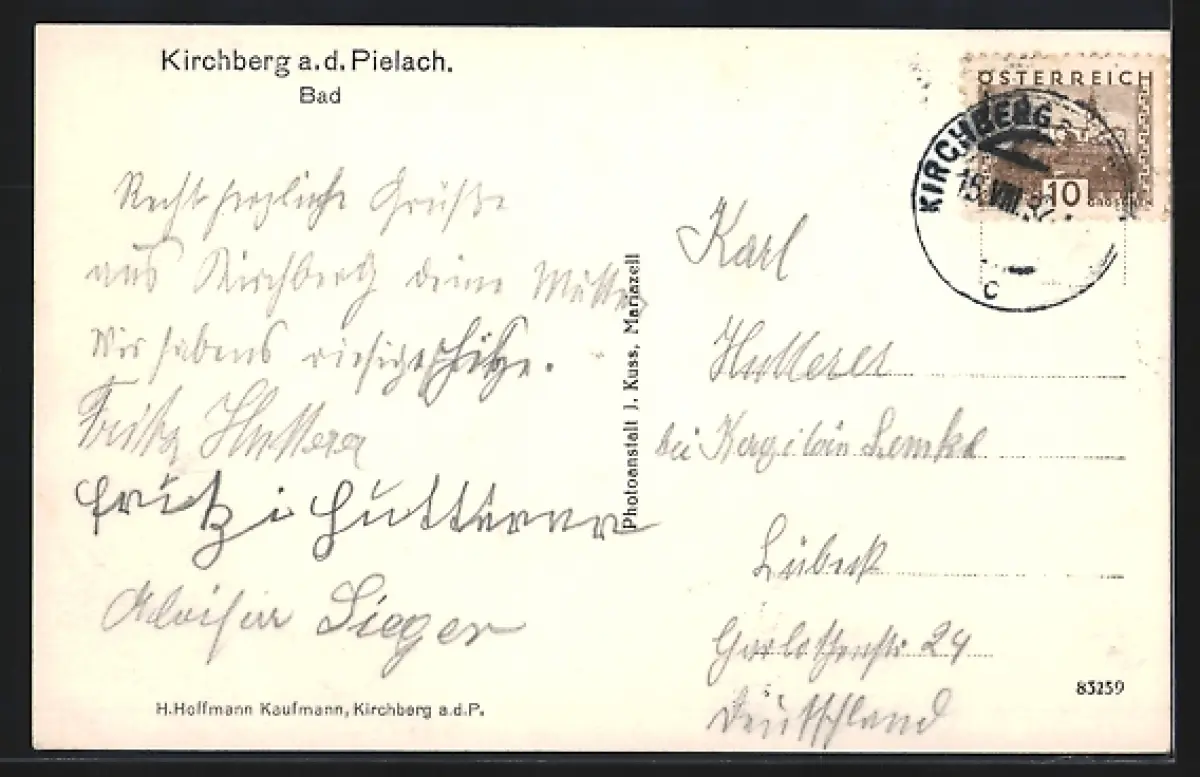 Kirchberg a.d. Pielach.
Bad
Recht herzliche Grüße
aus Kirchberg deine Mutter
Wir habens riesige Hitze.
Fritz Hutterer
Fritz i Hutterer
Aloisia Sieger
H.Hoffmann Kaufmann, Kirchberg a.d.P.
Photoanstalt J. Kuss, Mariazell
ÖSTERREICH
10
GROSCHEN
KIRCHBERG
15.VIII.32
C
Karl
Hutterer
bei Lemke
Lübeck
24
Deutschland
83259